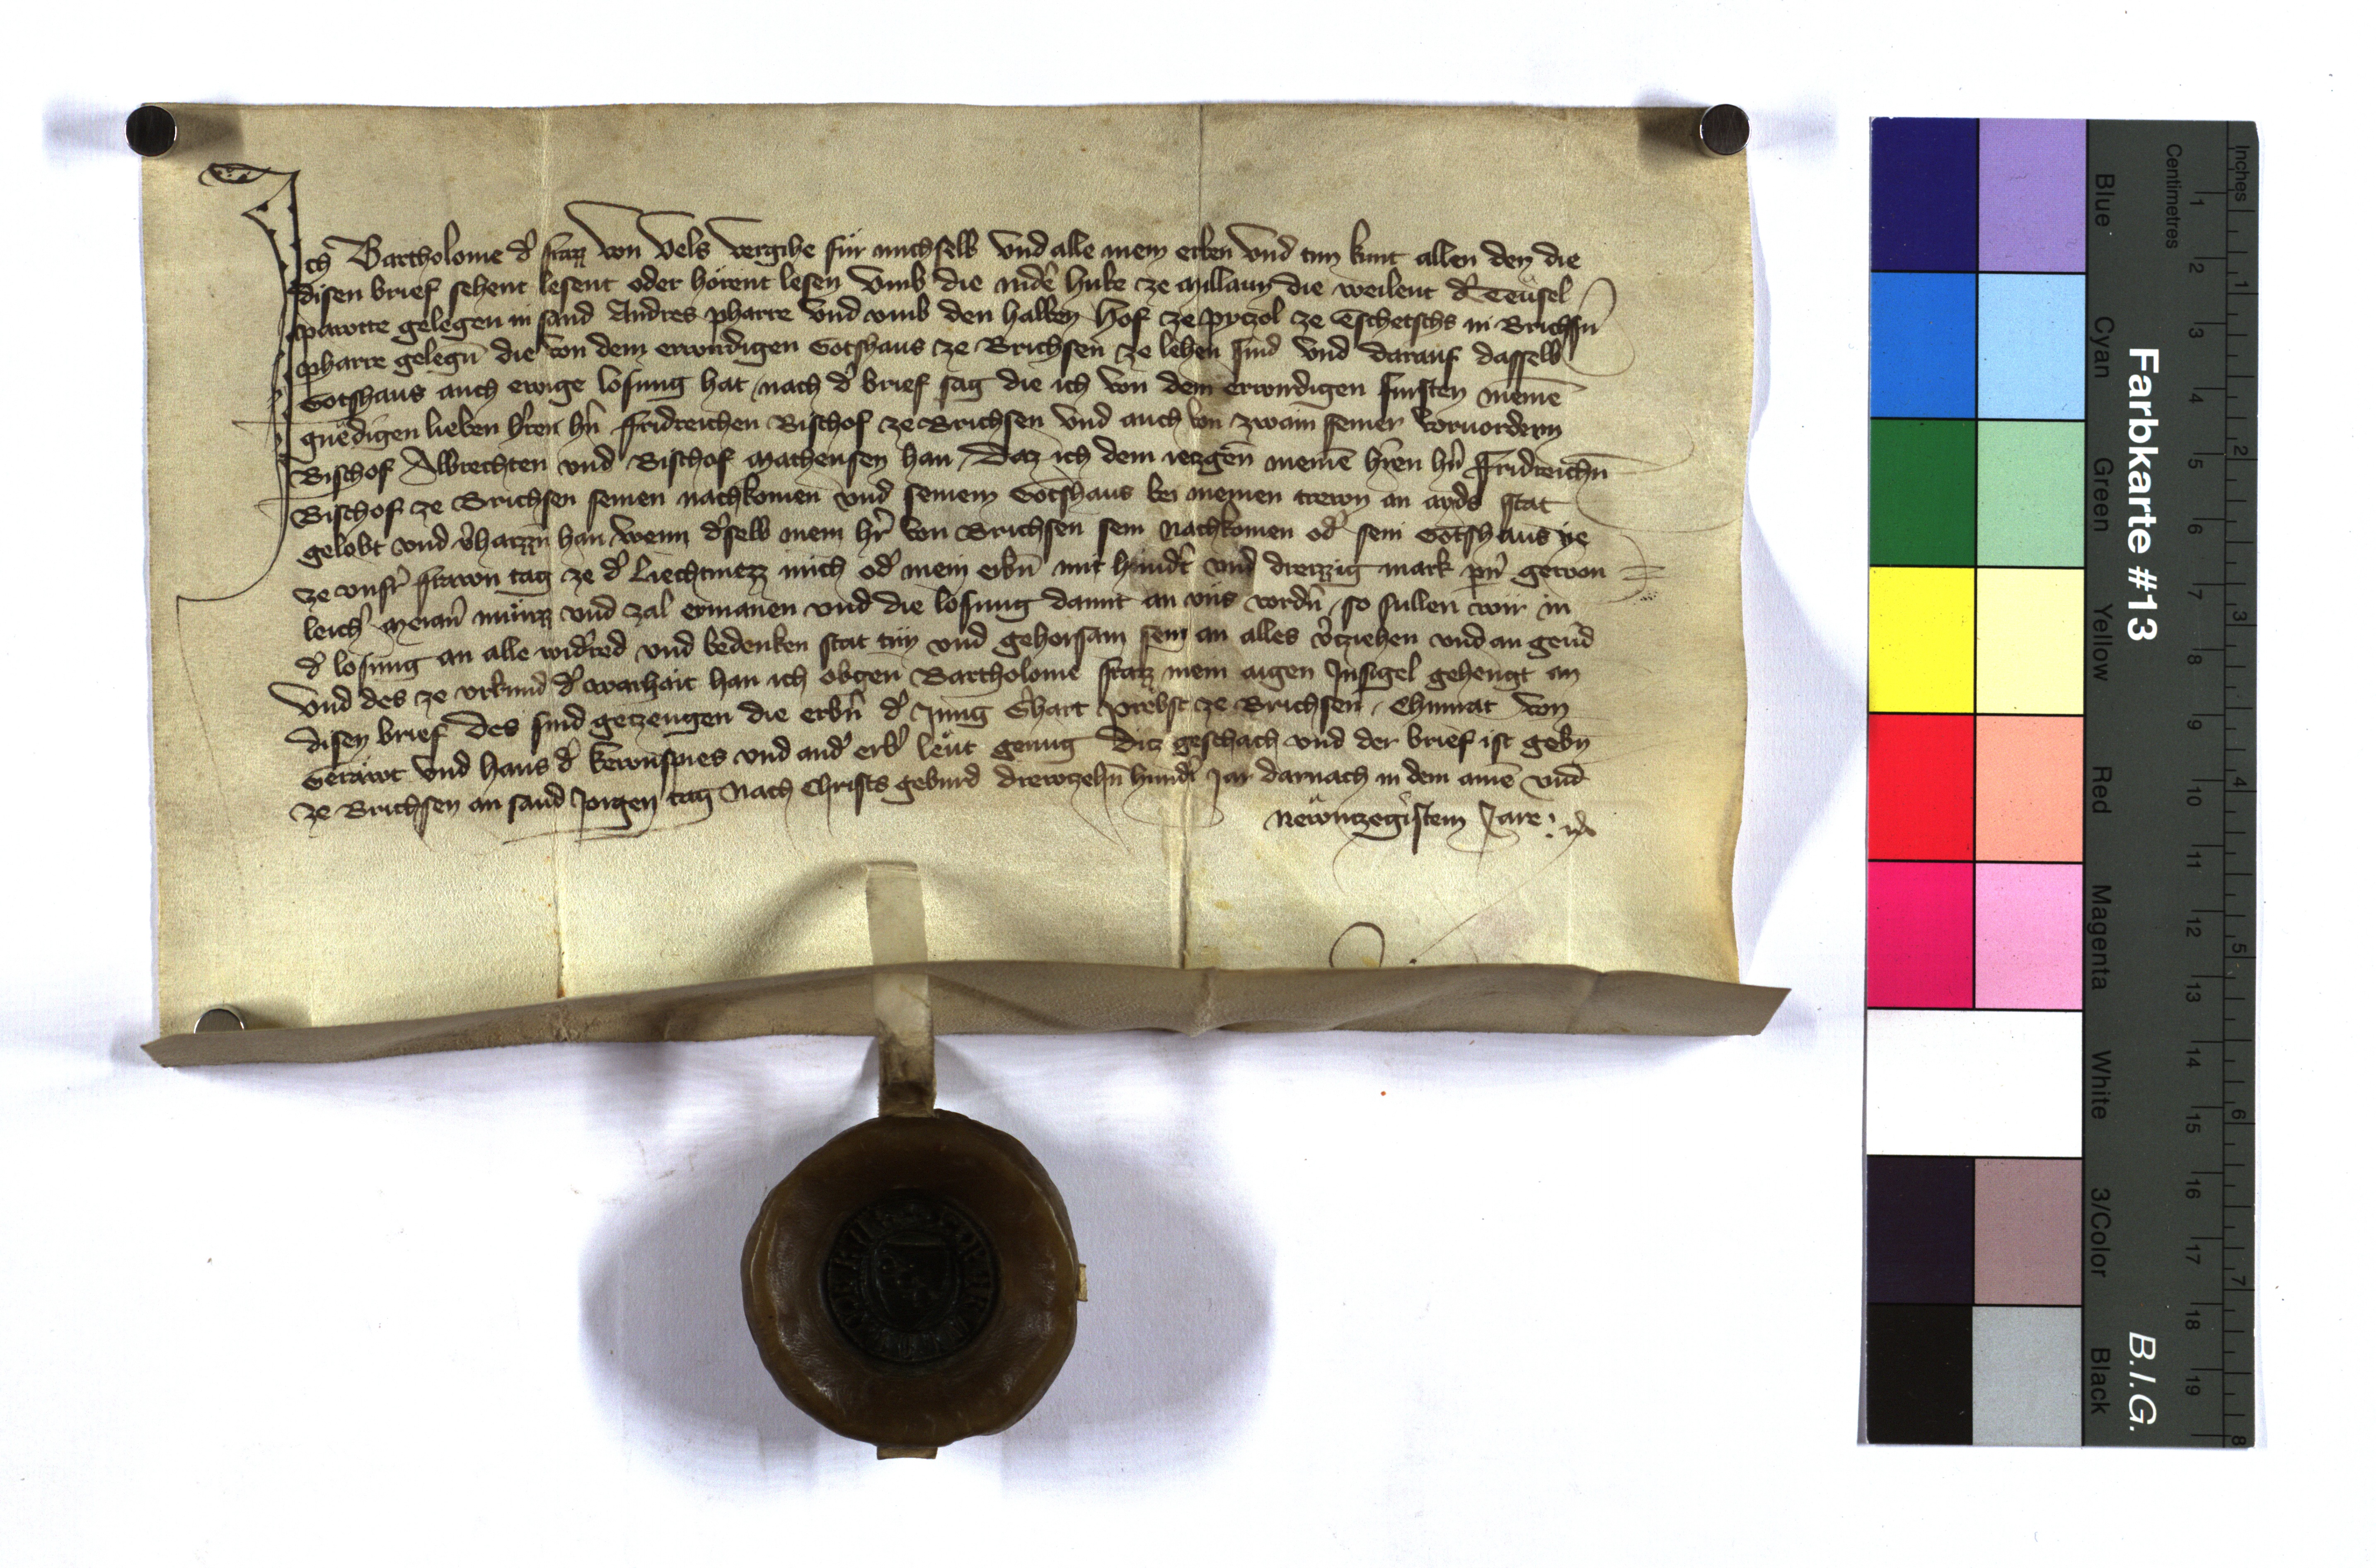 Ich Bartholome d' Straz von Vels vergihe für mich selb vnd alle mein erben vnd tun kunt allen den die
disen brief sehent lesent oder hörent lesen vmb die nider hube ze Millaun die weilent d' Teüsel
pawotte gelegen in sand Andres pharre vnd vmb den halben Hof ze pyczol ze Tschetschs in Brichsn̄
pharre gelegn̄ die von dem erwirdigen Gotshaus ze Brichsen ze lehen sind vnd darauf dasselb
Gotshaus auch ewige losung hat nach d' brief sag die ich von dem erwirdigen fursten meinē
gnëdigen lieben h'ren h'n Fridreichen Bischof ze Brichsen vnd auch von zwain seiner vorvordern
Bischof Albrechten vnd Bischof Matheusen han / Daz ich dem iezgen̄ meinē h'ren h'n Fridreichn̄
Bischof ze Brichsen seinen nachkomen vnd seinem Gotshaus bei meinen trewn an ayds stat
gelobt vnd v'haizzn̄ han wenn d'selb mein h'r von Brichsen sein Nachkomen od' sein Gotshaus ye
ze vnsr' frawn tag ze d' Liechtmezz mich od' mein erbn̄ mit hund't vnd dreizzig mark p'n' gewon
leich' Meran' münzz vnd zal ermanen vnd die losung damit an vns vordn̄ / so sullen wir in
d' losung an alle wid'red vnd bedenken stat tun vnd gehorsam sein an alles v'cziehen vnd an geu'd
Vnd des ze vrkund d' warhait han ich obgen Bartholome Straz mein aigen Insigel gehengt an
disen brief Des sind geczeugen die erbn̄ d' Jung G'hart Probst ze Brichsen / Chunrat von
Gerawt vnd Hans d' Kewnspies vnd and' erb' leüt genug Dicz geschach vnd der brief ist gebn̄
ze Brichsen an sand Jorgen tag Nach Christs geburd drewczehn̄ hund't Jar darnach in dem ainē vnd
Newnczegistem Jare:
Farbkarte #13
B.I.G.
Blue
Cyan
Green
Yellow
Red
Magenta
White
3/Color
Black
Centimetres
1 2 3 4 5 6 7 8 9 10 11 12 13 14 15 16 17 18 19
Inches
1 2 3 4 5 6 7 8